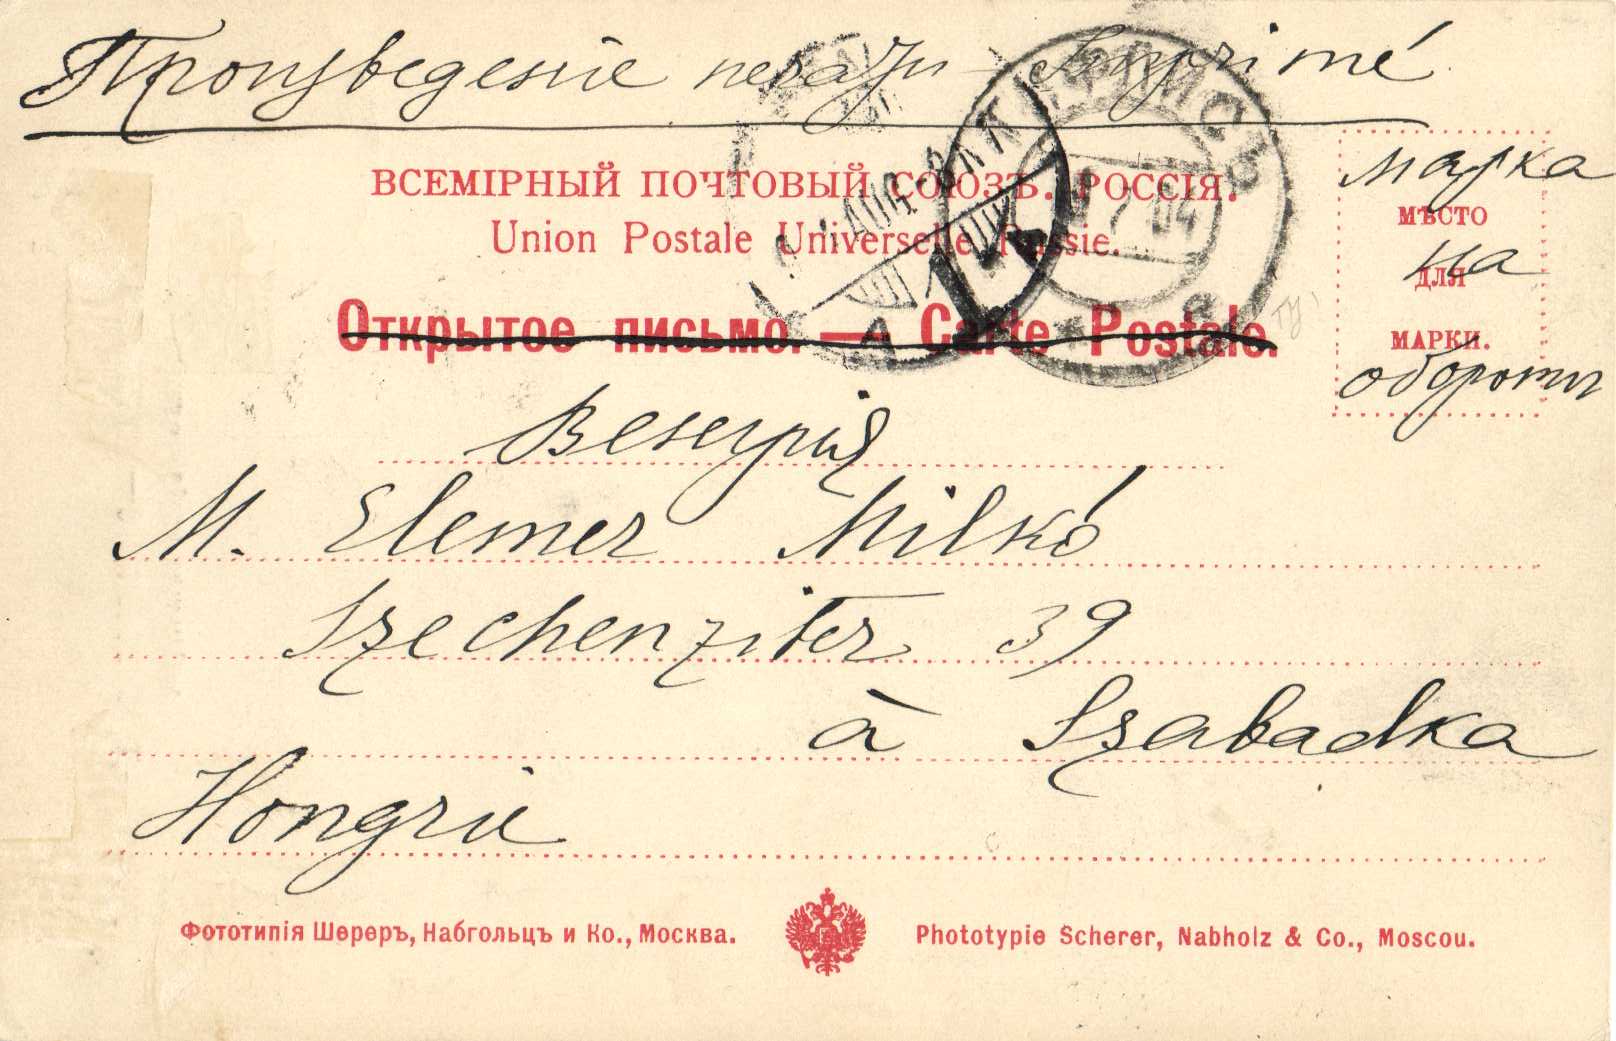 Произведеніе печати - Imprimé
ВСЕМІРНЫЙ ПОЧТОВЫЙ СОЮЗЪ. РОССІЯ.
Union Postale Universelle. Russie.
Открытое письмо. — Carte Postale.
марка
МѢСТО
на
ДЛЯ
МАРКИ.
обороти
ТИФЛИСЪ
7 04
AUG
Венгрія
M. Elemer Milkó
Szechenziter 39
à Szabadka
Hongrie
Фототипія Шереръ, Набгольцъ и Ко., Москва.
Phototypie Scherer, Nabholz & Co., Moscou.